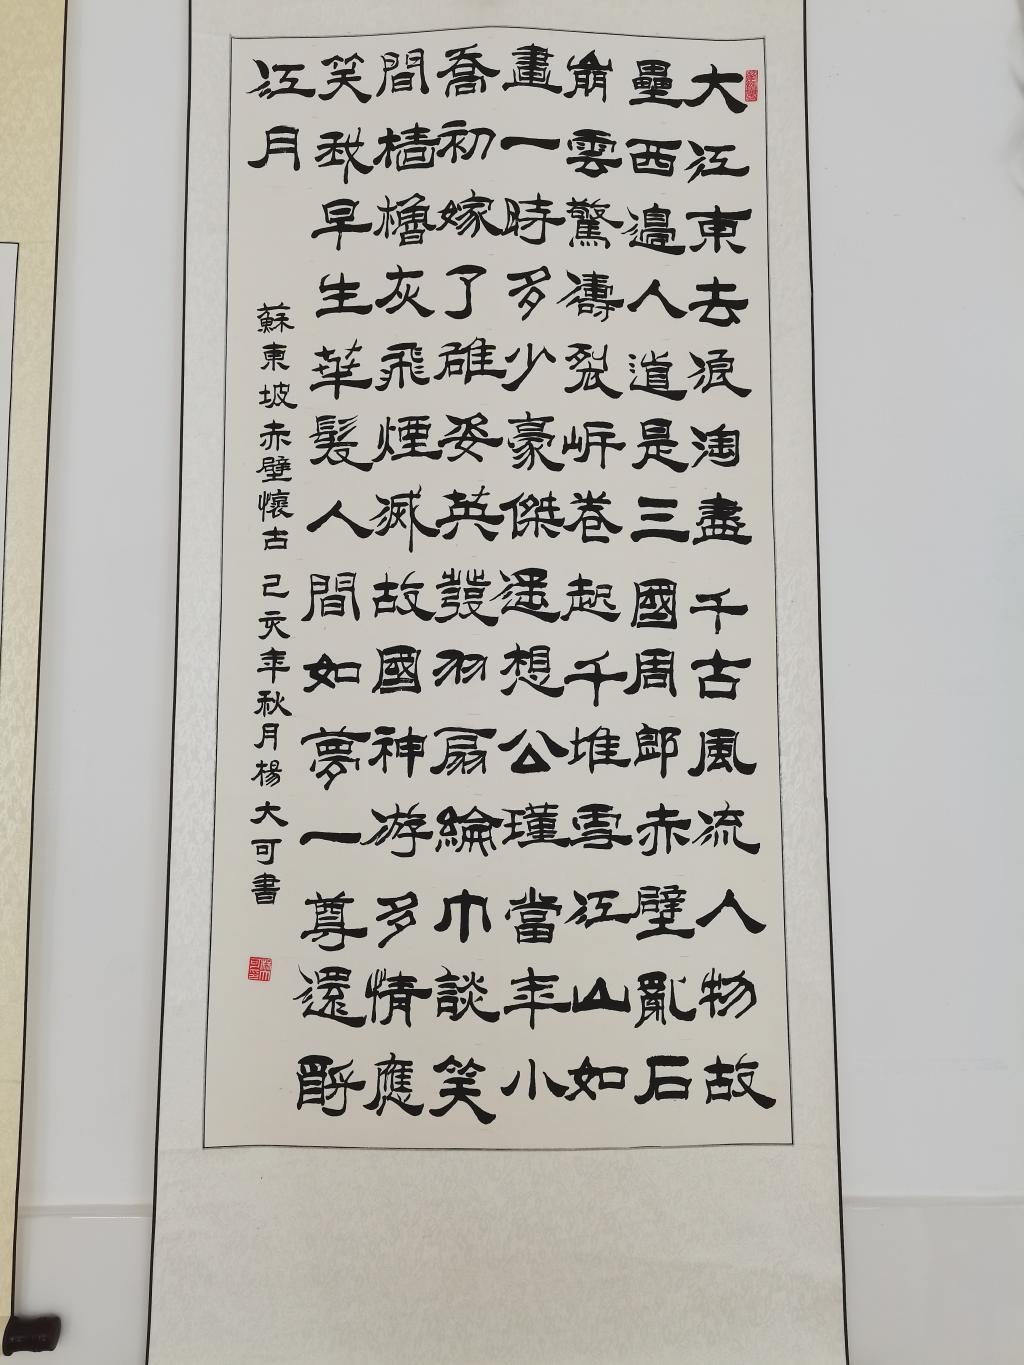 大江東去浪淘盡千古風流人物故
壘西邊人道是三國周郎赤壁亂石
崩雲驚濤裂岸卷起千堆雪江山如
畫一時多少豪傑遥想公瑾當年小
喬初嫁了雄姿英發羽扇綸巾談笑
間檣櫓灰飛煙滅故國神游多情應
笑我早生華髮人間如夢一尊還酹
江月
蘇東坡赤壁懷古 己亥年秋月楊大可書